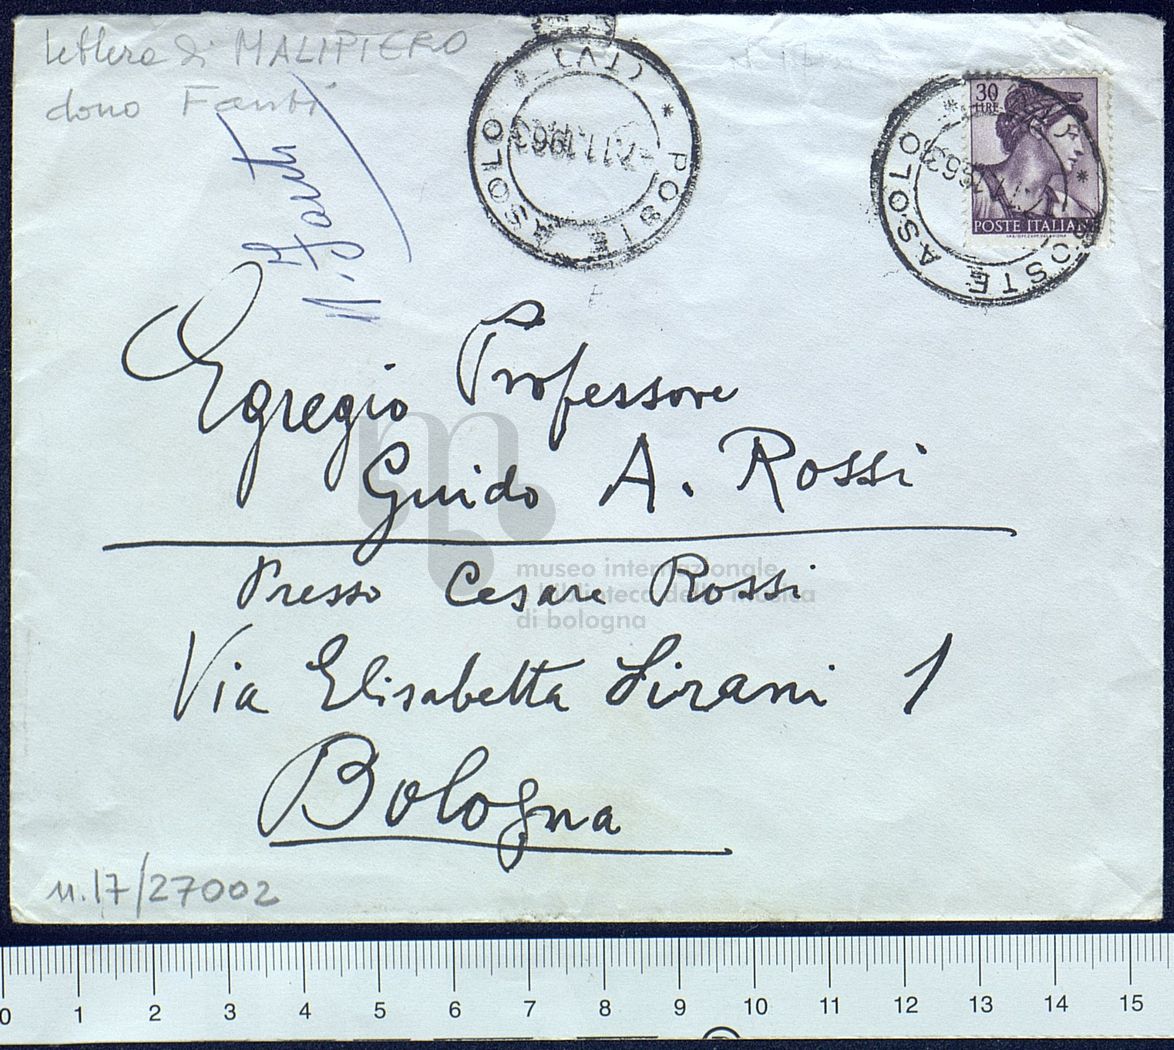 lettera di MALIPIERO
dono Fanti
N. Fanti
POSTE ASOLO
* (TV) *
11.1963
POSTE ASOLO
30
LIRE
POSTE ITALIANE
Egregio Professore
Guido A. Rossi
Presso Cesare Rossi
museo internazionale
e biblioteca della musica
di bologna
Via Elisabetta Sirani 1
Bologna
n.17/27002
0 1 2 3 4 5 6 7 8 9 10 11 12 13 14 15